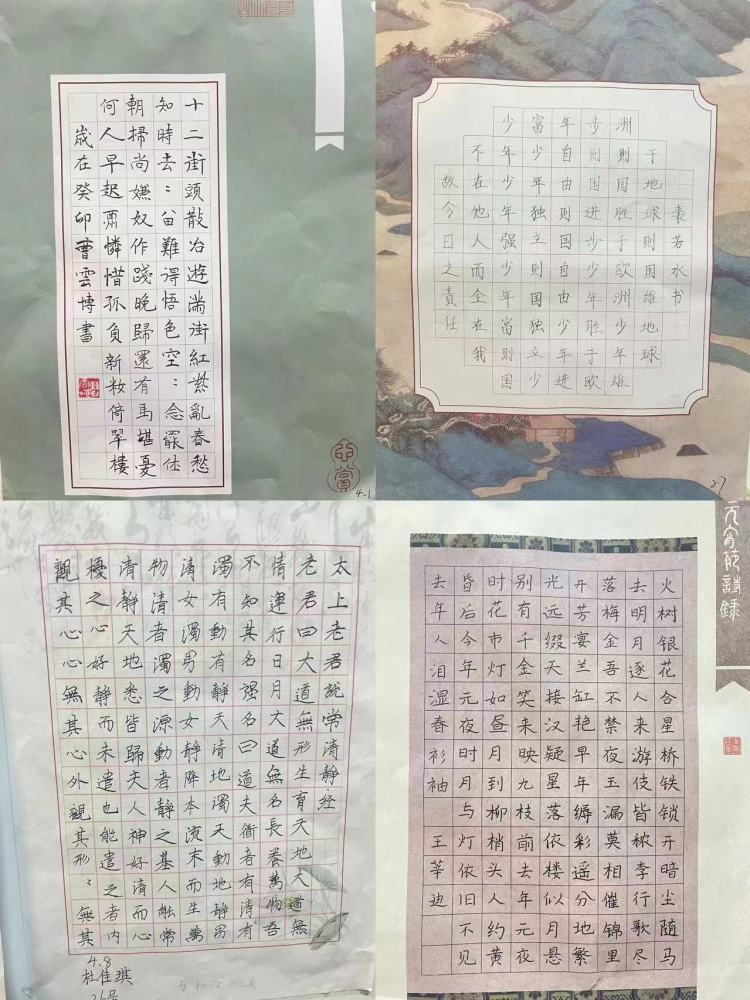 十二街頭散冶遊满街紅紫亂春愁
知時去〻留難得悟色空〻念罷休
朝掃尚嫌奴作踐晚歸還有馬堪憂
何人早起肅憐惜孤負新妝倚翠樓
歲在癸卯曹雲博書
4.1
故今日之责任
不在他人而全在我
少年少年强少年富则国
富少年独立则国独立少
年自由则国自由少年进
步则国进步少年胜于欧
洲则国胜于欧洲少年雄
于地球则国雄地球
袁若水书
27
太上老君說常清靜經
老君曰大道無形生育天地大道無
情運行日月大道無名長養萬物吾
不知其名强名曰道夫道者有清有
濁有動有靜天清地濁天動地靜男
清女濁男動女靜降本流末而生萬
物清者濁之源動者靜之基人能常
清靜天地悉皆歸夫人神好清而心
擾之心好靜而未遣也能遣之者内
觀其心心無其心外觀其形〻無其
4.8
杜佳琪
26号
元宵節詩錄
火树银花合星桥铁锁开暗尘随马
去明月逐人来游伎皆秾李行歌尽
落梅金吾不禁夜玉漏莫相催锦里
开芳宴兰缸艳早年缛彩遥分地繁
光远缀天接汉疑星落依楼似月悬
别有千金笑来映九枝前去年元夜
时花市灯如昼月到柳梢头人约黄
皆后今年元夜时月与灯依旧不见
去年人泪湿春衫袖 王莘迪